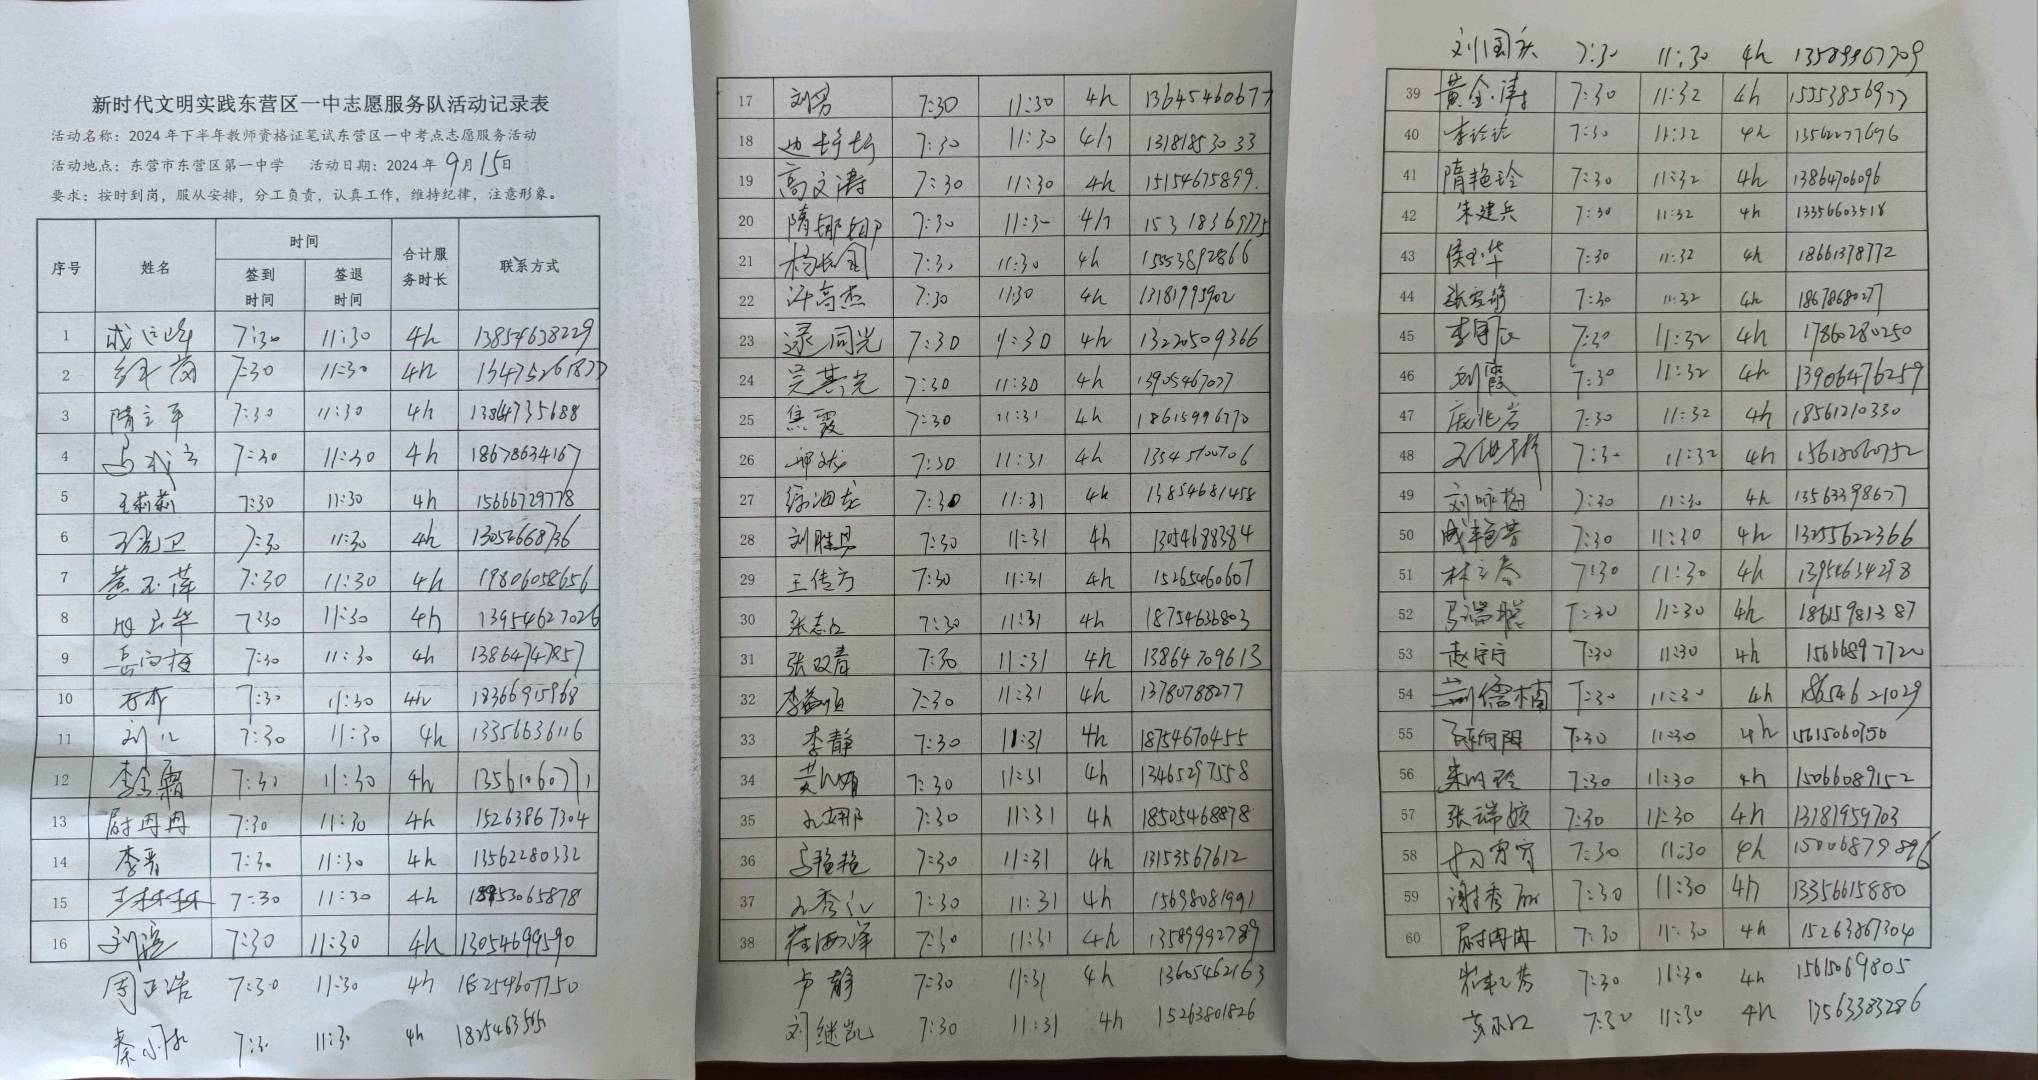 新时代文明实践东营区一中志愿服务队活动记录表
活动名称：2024年下半年教师资格证笔试东营区一中考点志愿服务活动
活动地点：东营市东营区第一中学 活动日期：2024年9月15日
要求：按时到岗，服从安排，分工负责，认真工作，维持纪律，注意形象。
序号 姓名 时间 合计服务时长 联系方式
签到时间 签退时间
1 7:30 11:30 4h 13854638229
2 7:30 11:30 4h
3 隋立平 7:30 11:30 4h
4 7:30 11:30 4h 18678634167
5 王莉莉 7:30 11:30 4h 15666729778
6 7:30 11:30 4h
7 7:30 11:30 4h 19806058656
8 7:30 11:30 4h 13954627026
9 7:30 11:30 4h 13864747857
10 7:30 11:30 4h 18366915968
11 7:30 11:30 4h 13356636116
12 李金霜 7:30 11:30 4h 13561060771
13 尉冉冉 7:30 11:30 4h 15263867304
14 李青 7:30 11:30 4h 13562280332
15 王林林 7:30 11:30 4h
16 7:30 11:30 4h 13054699590
周正浩 7:30 11:30 4h 18254607750
秦 7:30 11:30 4h
17 刘男 7:30 11:30 4h 13645460677
18 7:30 11:30 4h
19 高文涛 7:30 11:30 4h 15154675899
20 隋娜娜 7:30 11:30 4h 15318369775
21 7:30 11:30 4h 15553892866
22 许高杰 7:30 11:30 4h 13181995902
23 逯同光 7:30 11:30 4h 13220509366
24 吴其光 7:30 11:30 4h
25 焦霞 7:30 11:31 4h 18615996770
26 7:30 11:31 4h
27 徐海龙 7:30 11:31 4h 13854681458
28 刘胜男 7:30 11:31 4h 13054688384
29 王传方 7:30 11:31 4h 15265460607
30 7:30 11:31 4h 18754636803
31 张双春 7:30 11:31 4h 13864709613
32 李益顺 7:30 11:31 4h 13780788277
33 李静 7:30 11:31 4h 18754670455
34 7:30 11:31 4h 13465297558
35 7:30 11:31 4h 18505468878
36 马艳艳 7:30 11:31 4h 13153567612
37 7:30 11:31 4h 15698081991
38 崔海洋 7:30 11:31 4h 13589992789
卢静 7:30 11:31 4h 13605462163
刘继凯 7:30 11:31 4h 15263801826
刘国庆 7:30 11:30 4h 13589967709
39 黄金涛 7:30 11:32 4h 15553856977
40 李玲玲 7:30 11:32 4h 13562277696
41 隋艳玲 7:30 11:32 4h 13864706096
42 朱建兵 7:30 11:32 4h 13356603518
43 侯玉华 7:30 11:32 4h 18661378772
44 7:30 11:32 4h
45 7:30 11:32 4h
46 刘霞 7:30 11:32 4h 13906476259
47 庞兆岩 7:30 11:32 4h 18561210330
48 7:30 11:32 4h
49 刘咏梅 7:30 11:30 4h 13563398677
50 成艳芳 7:30 11:30 4h 13255622366
51 林立春 7:30 11:30 4h 13954634298
52 马瑞聪 7:30 11:30 4h 18615981387
53 赵宁宁 7:30 11:30 4h 15666897720
54 荆儒楠 7:30 11:30 4h 18654621029
55 7:30 11:30 4h 15615060750
56 7:30 11:30 4h 15066089152
57 张瑞姣 7:30 11:30 4h 13181959703
58 7:30 11:30 4h 15006879896
59 谢秀丽 7:30 11:30 4h 13356615880
60 尉冉冉 7:30 11:30 4h 15263867304
7:30 11:30 4h 15615069805
7:30 11:30 4h 13563383286